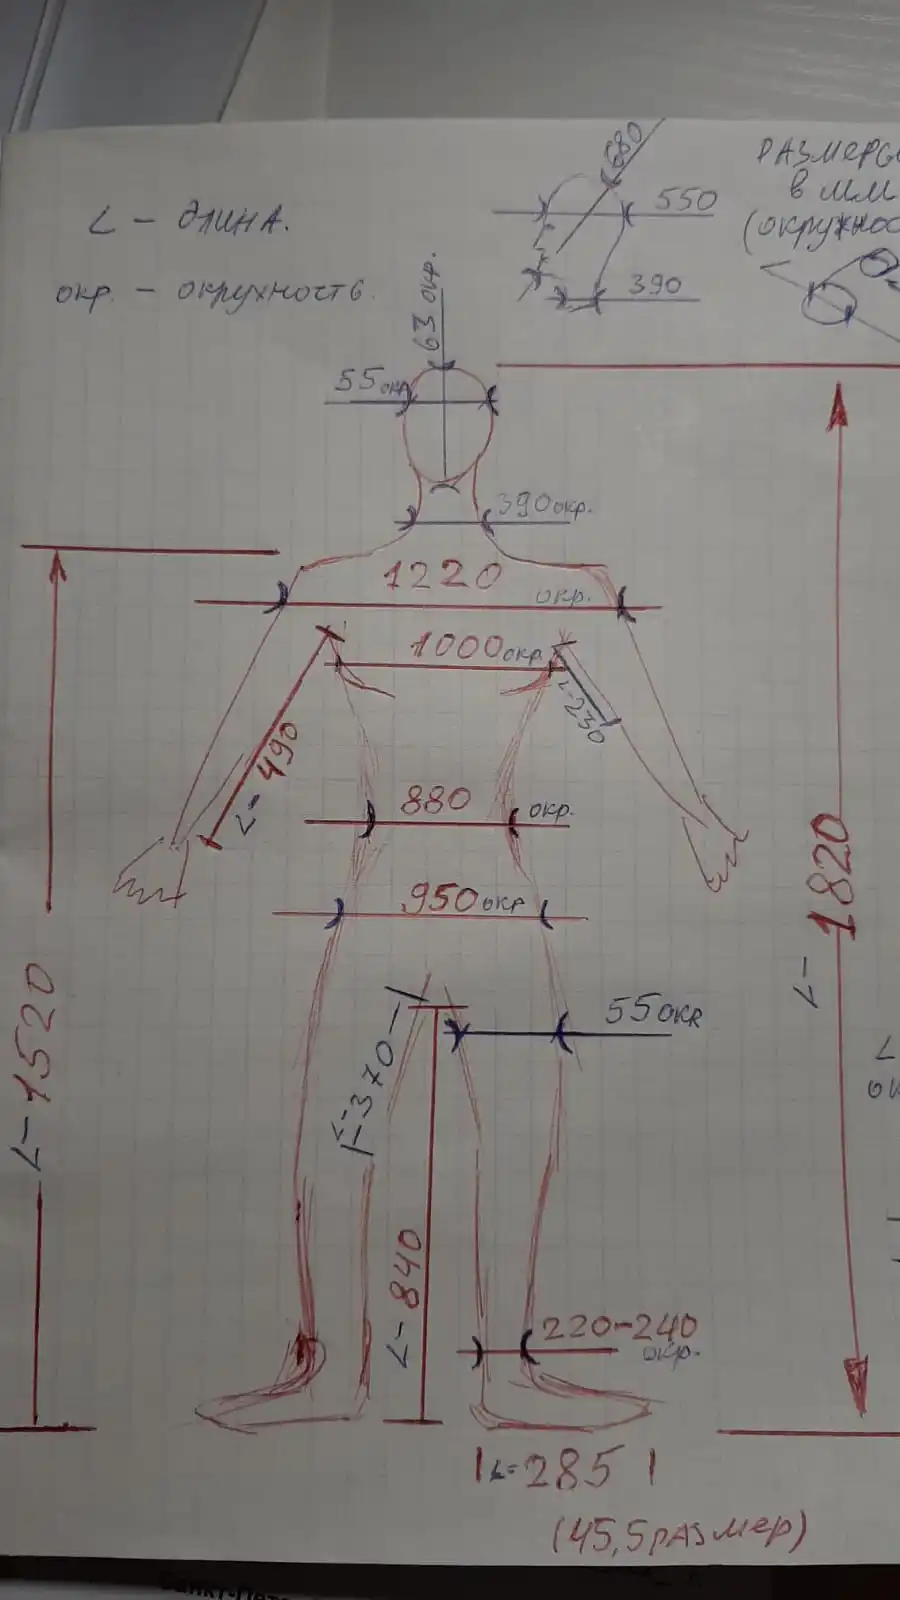 680
РАЗМЕРЫ
L - ДЛИНА.
550
В ММ
(окружнос
окр. - окружность.
390
63 окр.
55 окр
390 окр.
1220
окр.
1000 окр
L-230
L-490
880
окр.
950 окр
L-1820
L-1520
55 окр
L-370
L
ок
L-840
220-240
окр.
L=285
(45,5 размер)